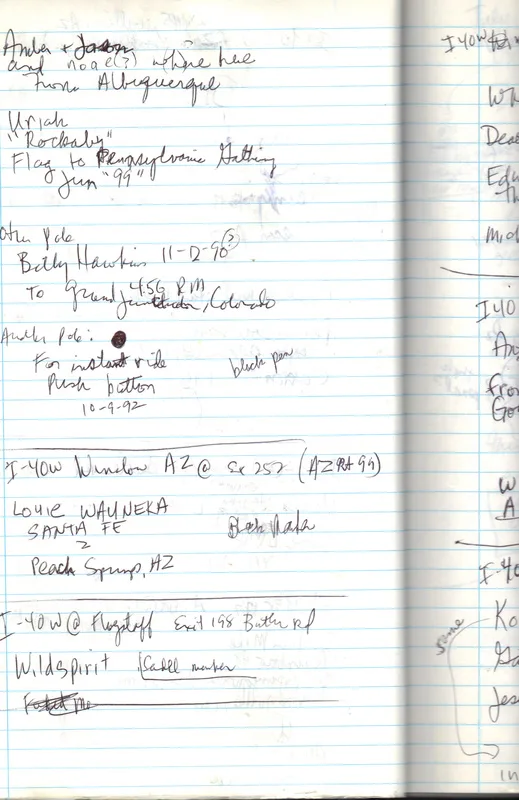 Amber + Jason
and noae(?) where here
from Albuquerque
Uriah
"Rockaby"
Flag to Pennsylvania Getting
Jun "99"
Other Pole
Billy Hawkins 11-12-90(?)
4:56 PM
To Grand Junction, Colorado
Another Pole:
For instant ride
Push button
black pen
10-9-92
I-40W Winslow AZ @ Ex 252 (AZ Rt 99)
LOUIE WAUNEKA
SANTA FE
2
Black Marker
Peach Springs, AZ
I-40W @ Flagstaff Exit 198 Butler Rd
Wildspirit
marker
I-40W
Wh
Dea
Edu
Th
mid
I-40
An
from
Go
W
A
I-40
same
Ko
Ga
Jes
in